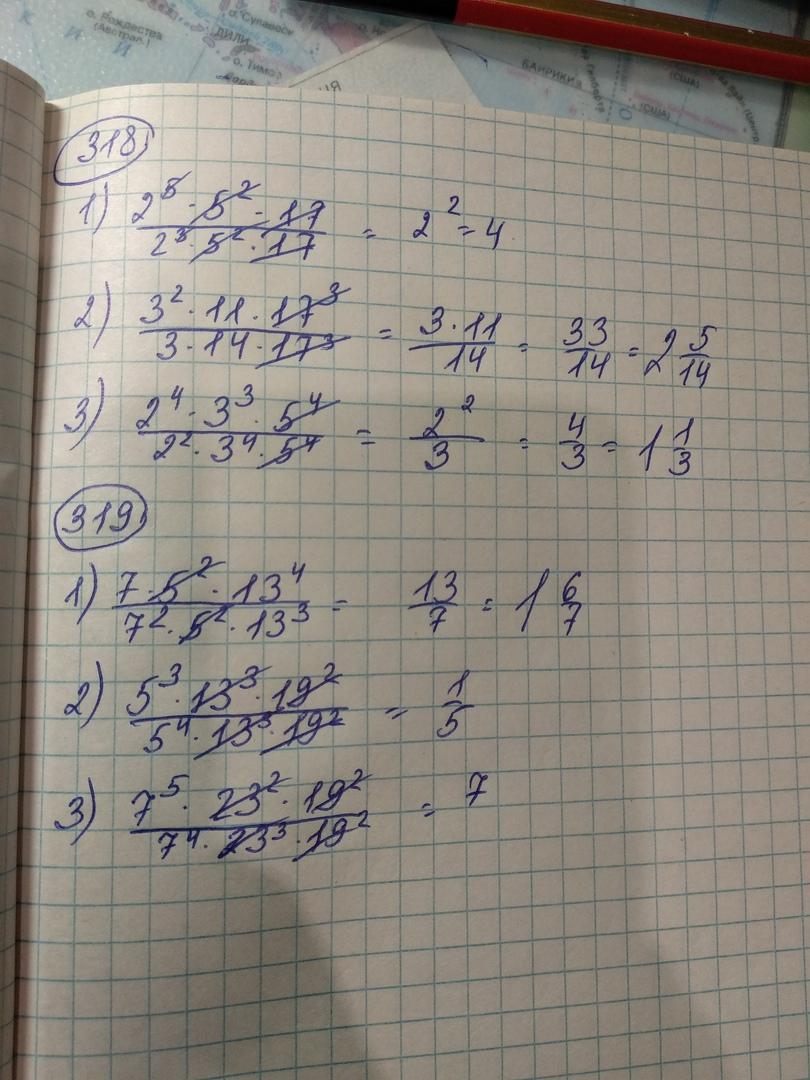 о. Рождества
(Австрал.)
о. Сулавеси
ДИЛИ
о. Тимо
КИ
БАЙРИКИ
(США)
(США)
318
1) 2⁵ · 5² · 17 / 2³ · 5² · 17 = 2² = 4
2) 3² · 11 · 17³ / 3 · 14 · 17³ = 3 · 11 / 14 = 33/14 = 2 5/14
3) 2⁴ · 3³ · 5⁴ / 2² · 3⁴ · 5⁴ = 2²/3 = 4/3 = 1 1/3
319
1) 7 · 5² · 13⁴ / 7² · 5² · 13³ = 13/7 = 1 6/7
2) 5³ · 13³ · 19² / 5⁴ · 13³ · 19² = 1/5
3) 7⁵ · 23² · 19² / 7⁴ · 23³ · 19² = 7